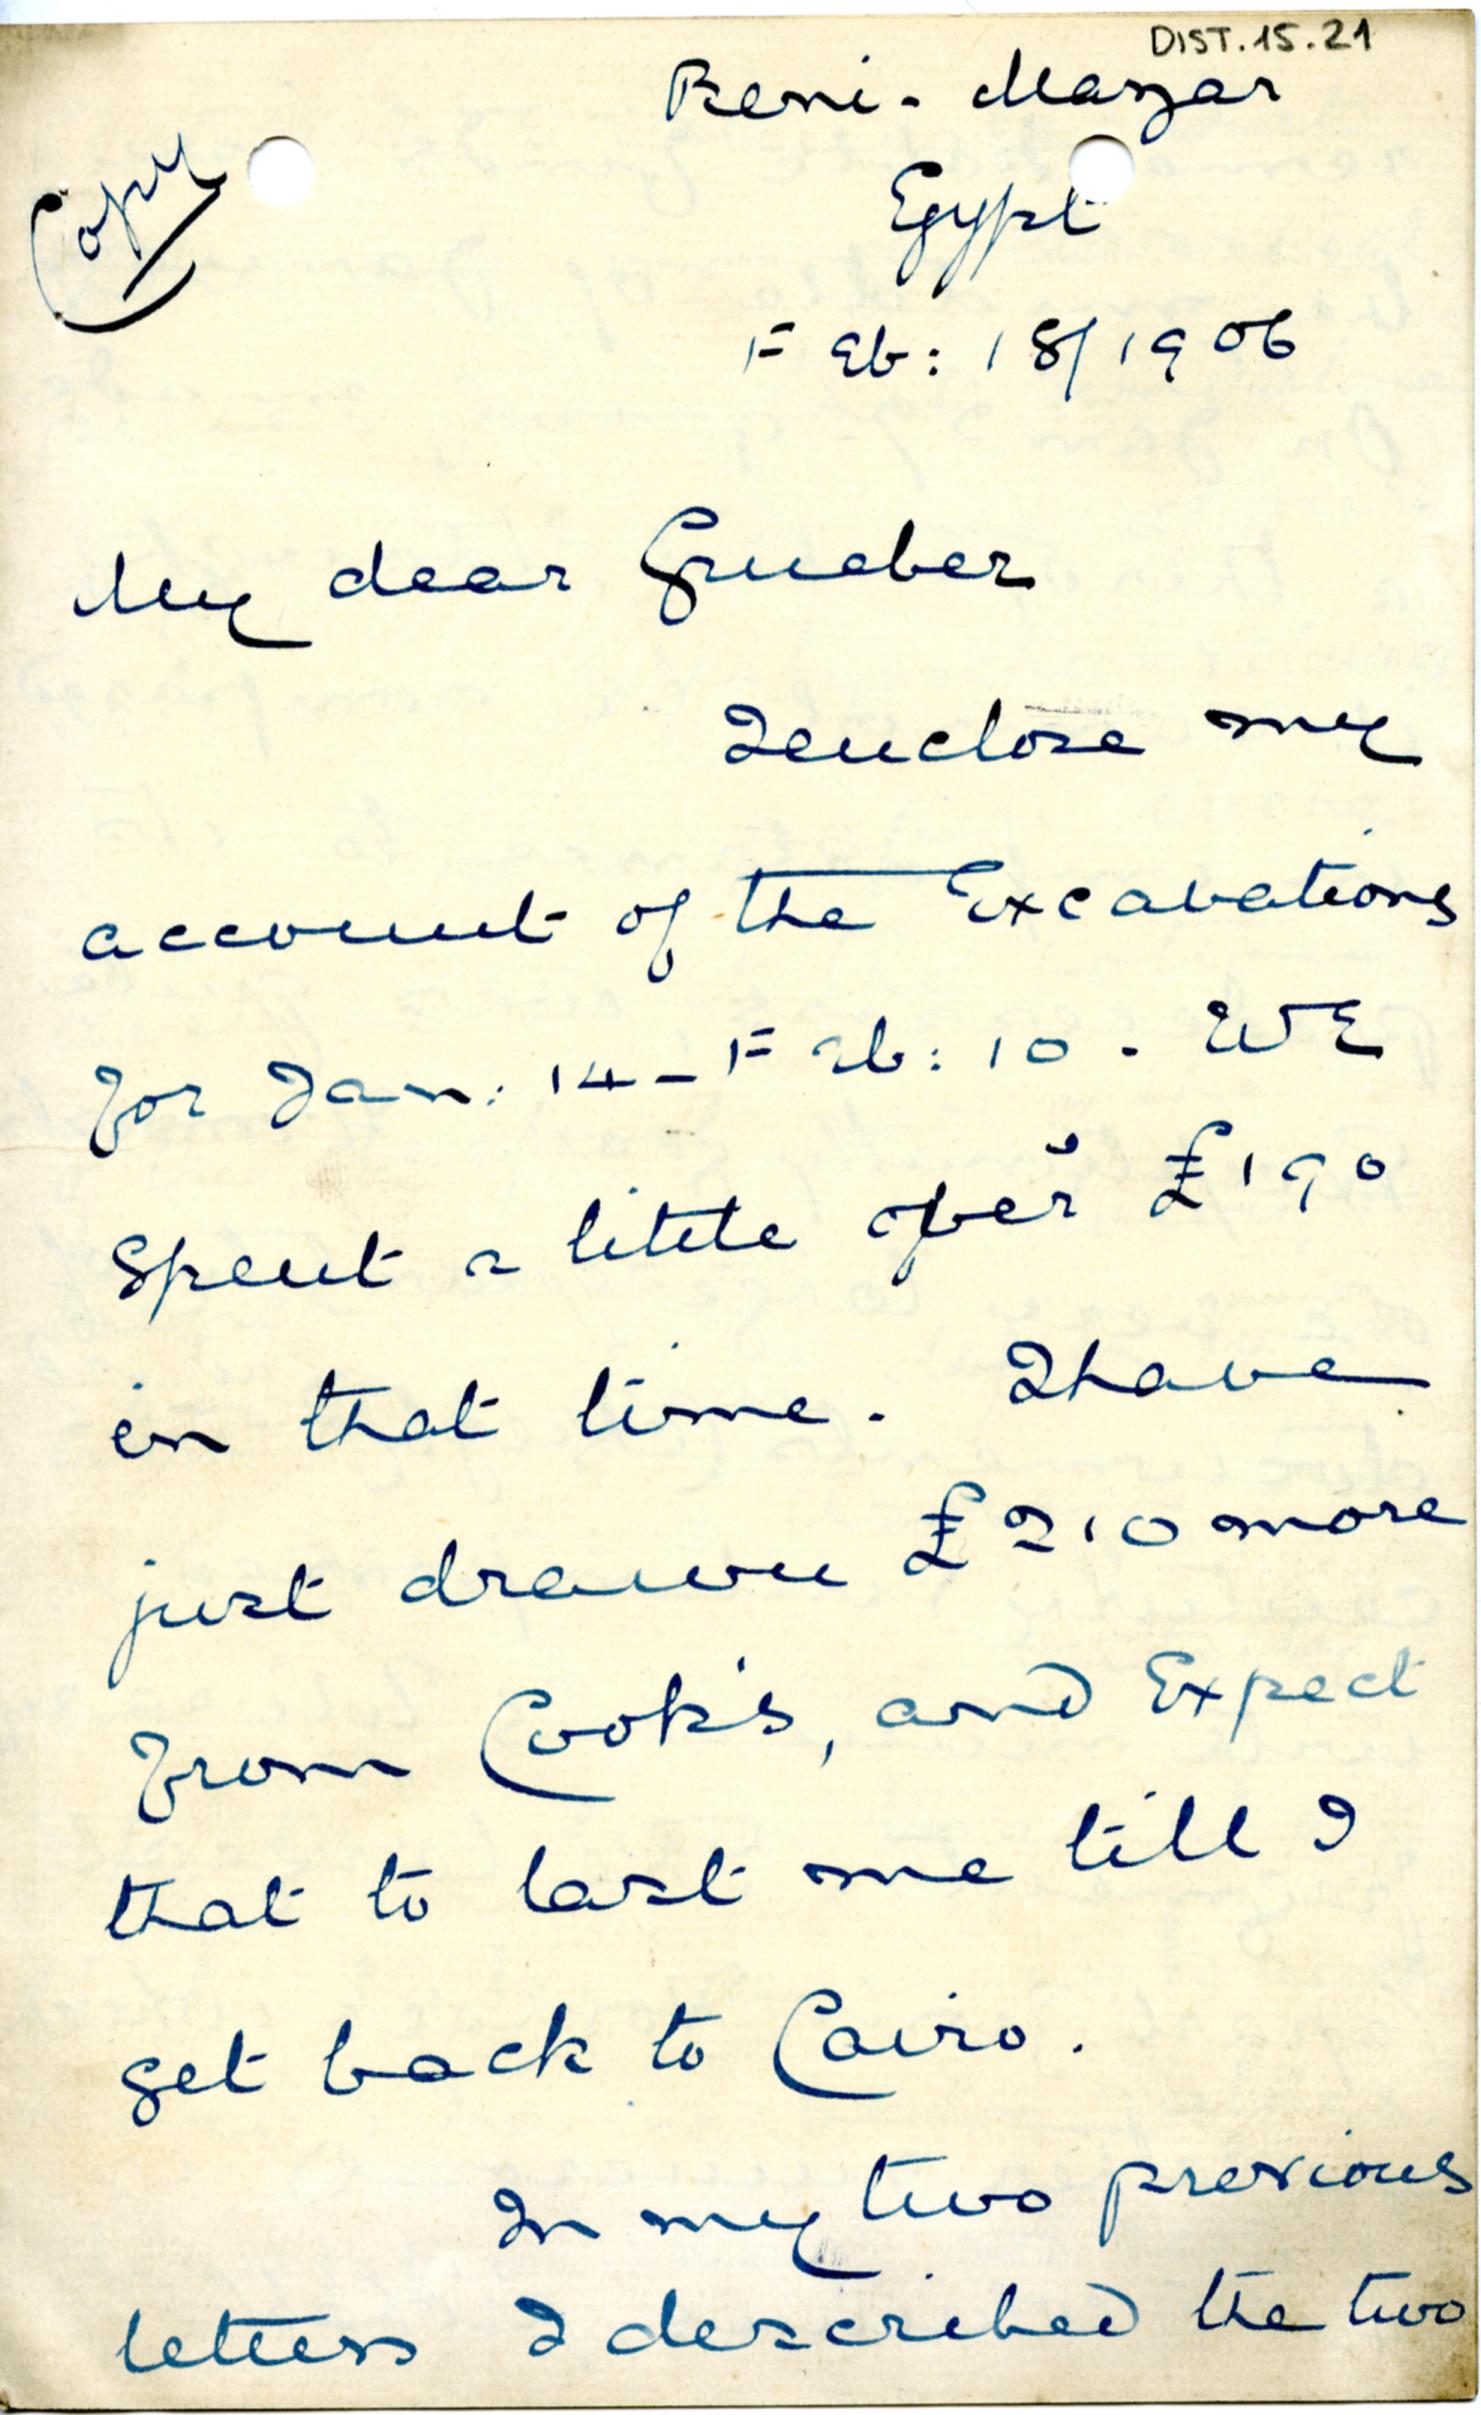 DIST.15.21
Beni-Mazar
Copy
Egypt
Feb: 18/1906
My dear Grueber
I enclose my
account of the Excavations
for Jan: 14 - Feb: 10. WE
spent a little over £190
in that time. I have
just drawn £210 more
from Cook's, and Expect
that to last me till I
get back to Cairo.
In my two previous
letters I described the two